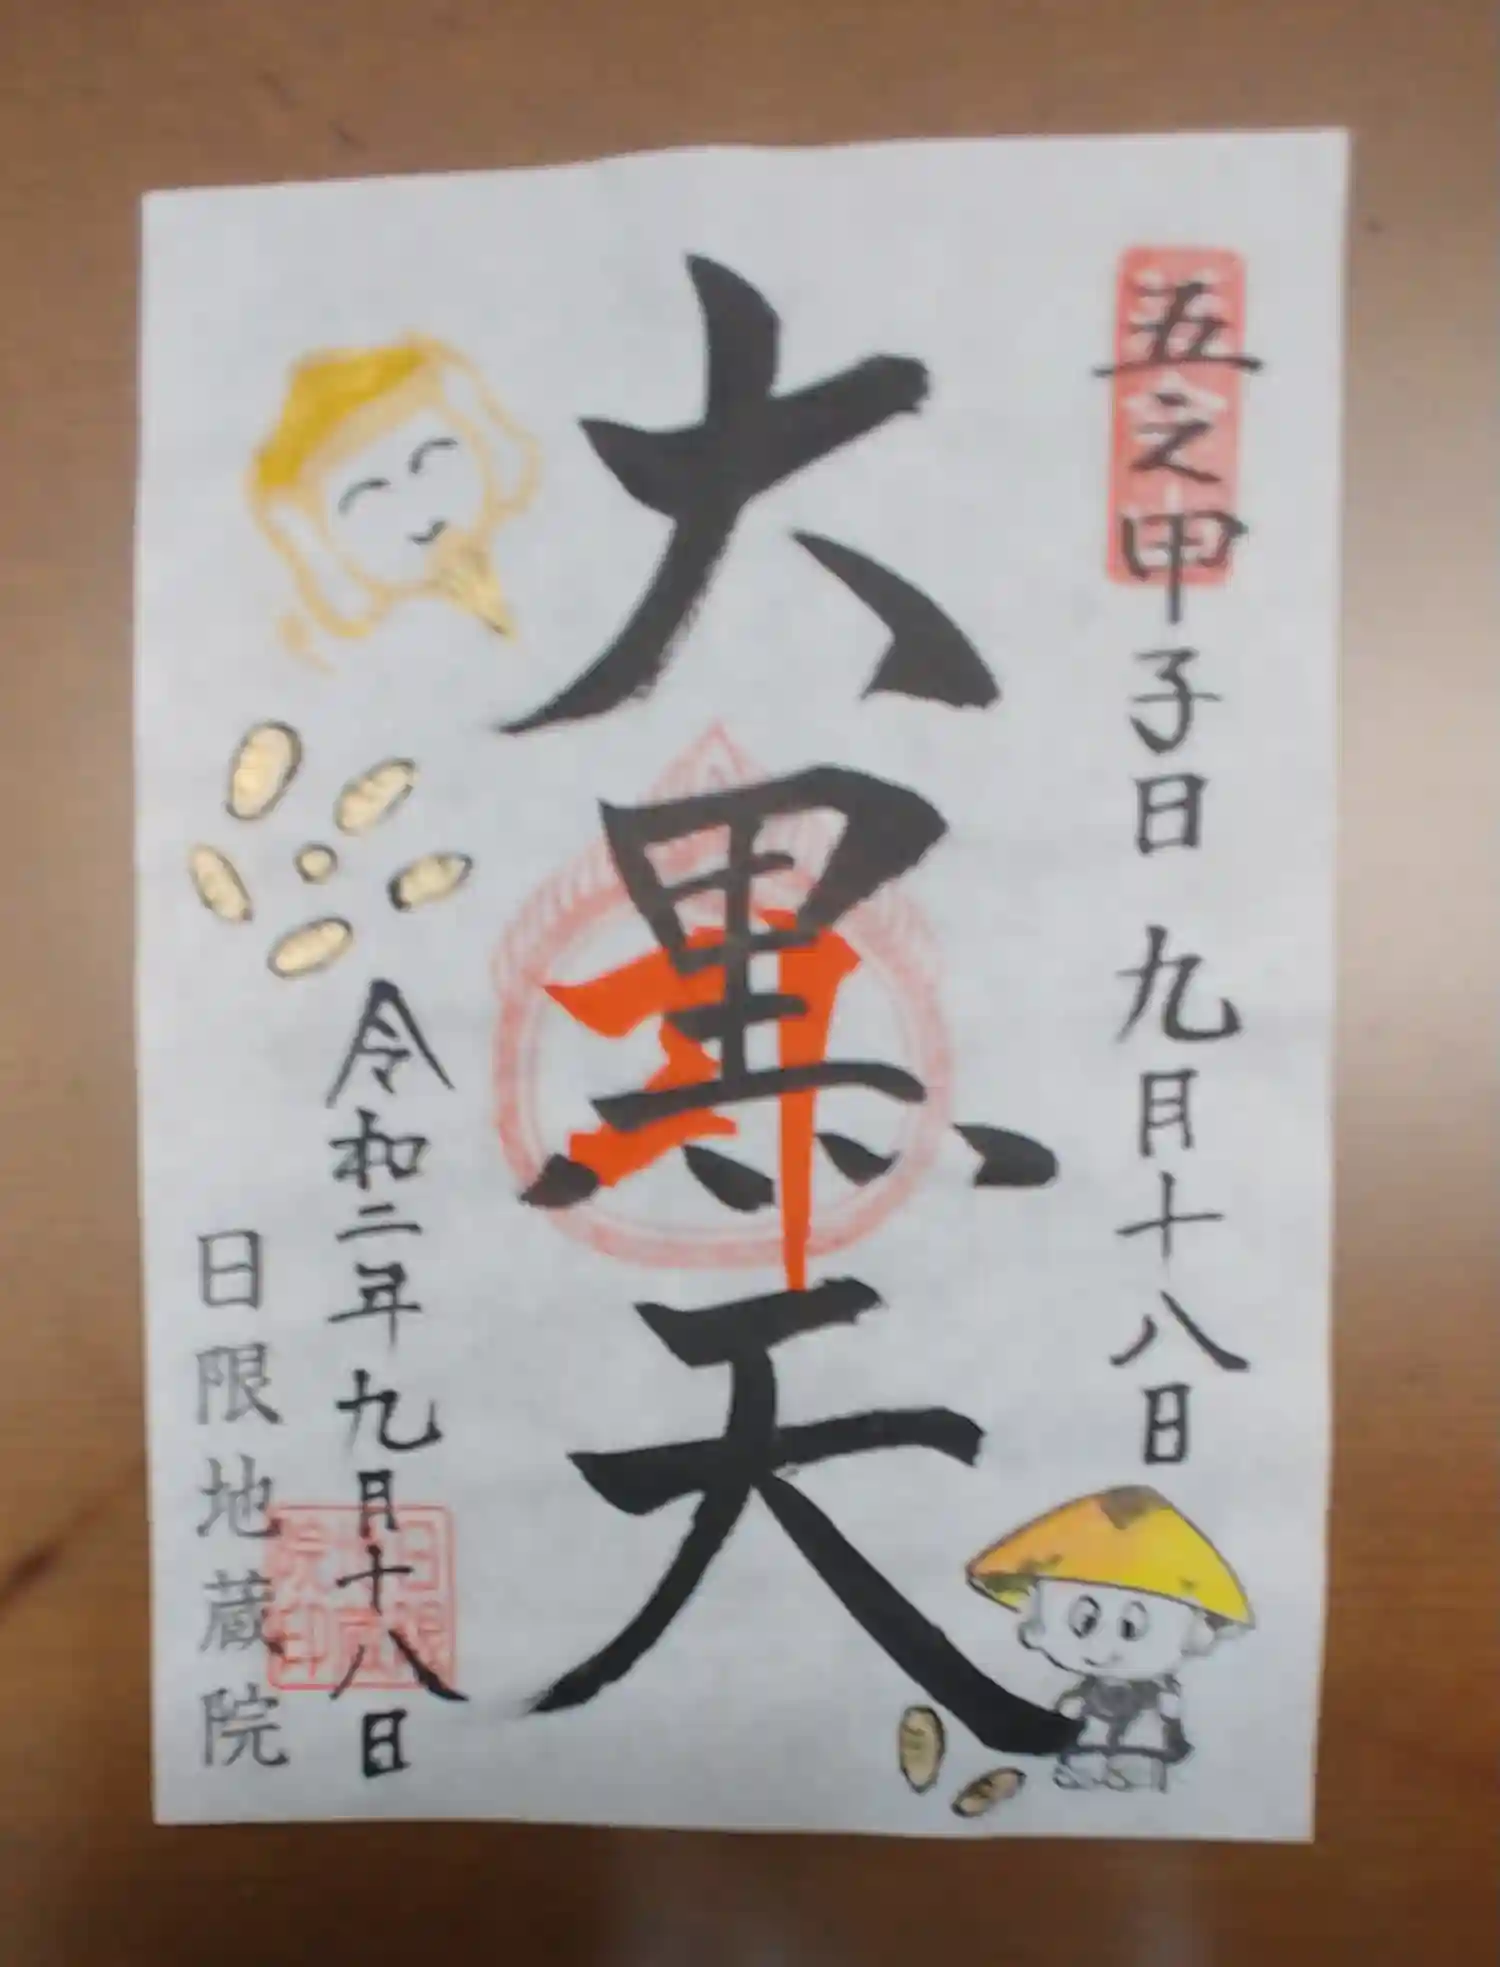 五之甲子日 九月十八日
大黒天
令和二年九月十八日
日限地蔵院